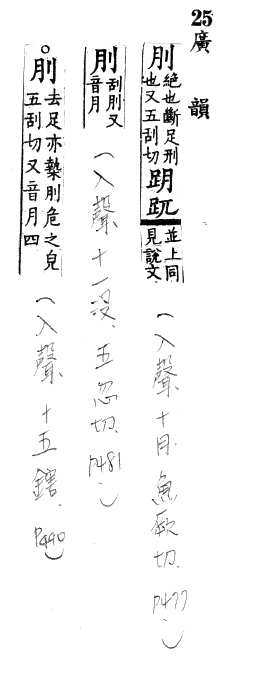 25 廣韻
刖 絕也斷足刑也又五刮切 跀 𧿁 並上同見說文 (入聲、十月、魚厥切、P477)
刖 刮刖又音月 (入聲、十一没、五忽切、P481)
刖 去足亦槷刖危之皃五刮切又音月四 (入聲、十五鎋、P490)